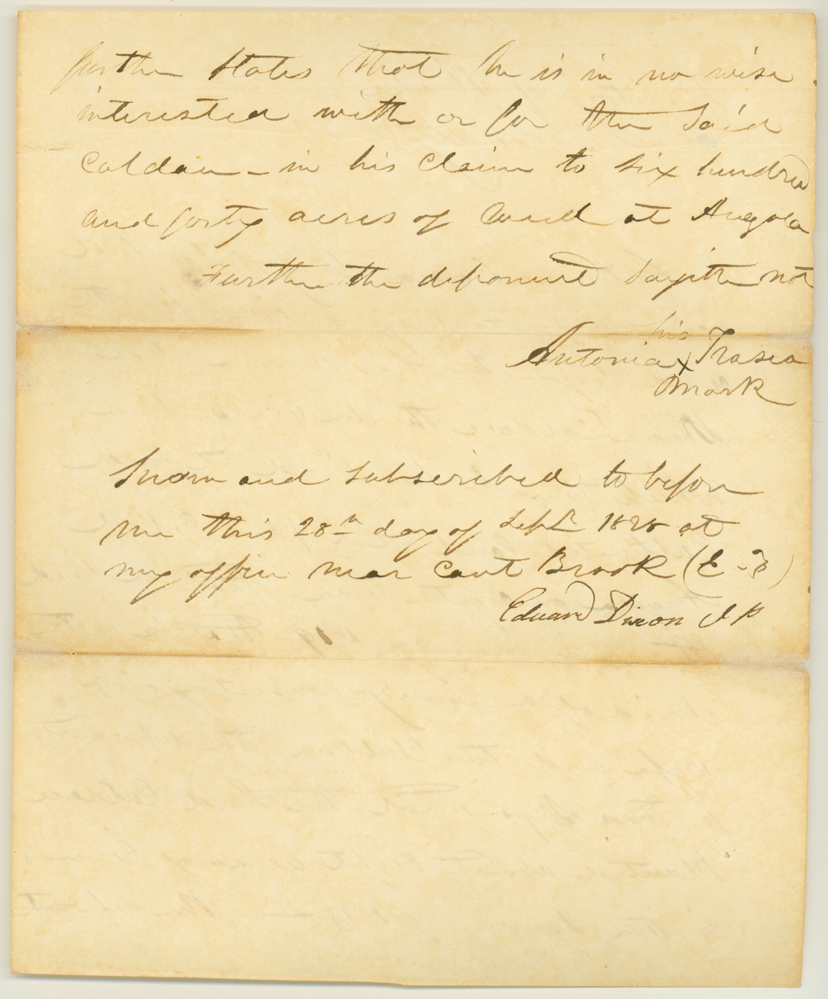 further States that he is in no wise
interested with or for the Said
Caldau - in his Claim to six hundred
and forty acres of land at Angola
Further the deponent Sayith not
his
Antonio x Trasia
mark
Sworn and subscribed to before
me this 28th day of Sept 1828 at
my office near Cant Brook (E-F)
Edward Dixon J P